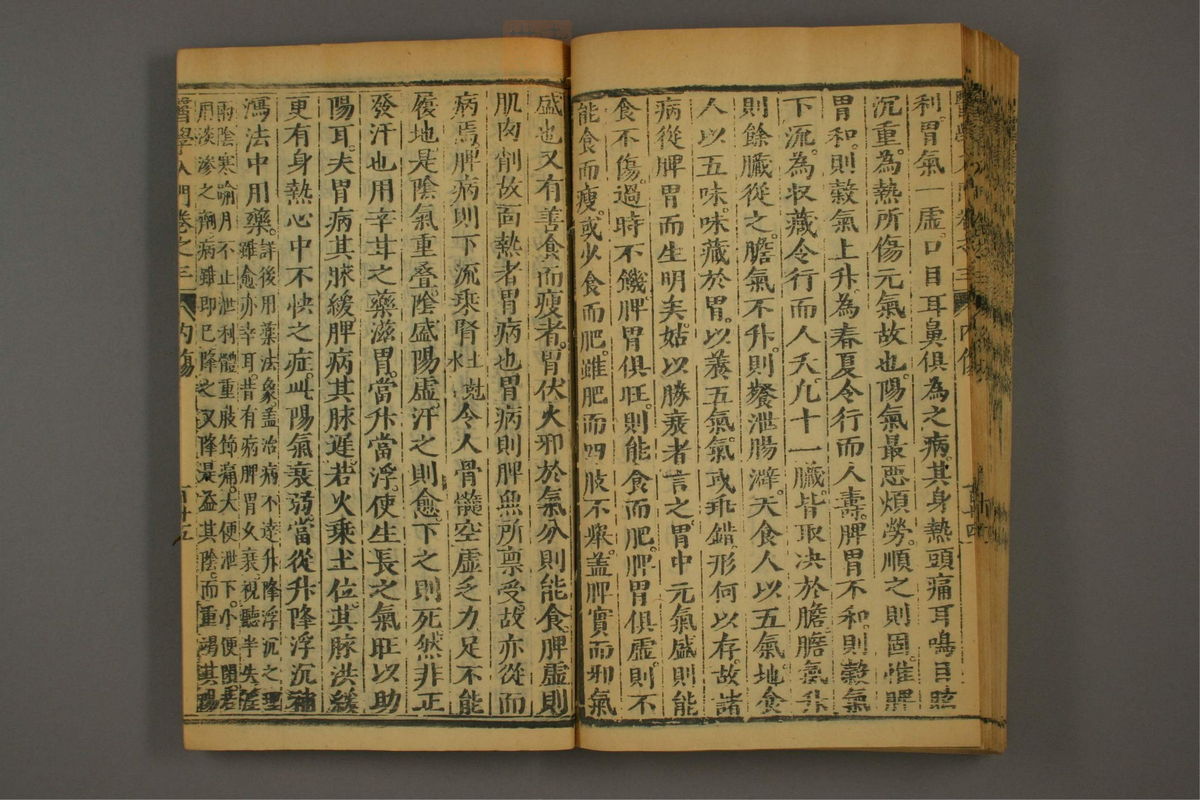 利胃氣一虛口目耳鼻俱為之病其身熱頭痛耳鳴目眩
沉重為熱所傷元氣故也陽氣最惡煩勞順之則固惟脾
胃和則穀氣上升為春夏令行而人壽脾胃不和則穀氣
下流為収藏令行而人夭凡十一臟皆取決於膽膽氣升
則餘臟從之膽氣不升則飱泄腸澼天食人以五氣地食
人以五味味藏於胃以養五氣氣或乖錯形何以存故諸
病從脾胃而生明矣姑以勝衰者言之胃中元氣盛則能
食不傷過時不饑脾胃俱旺則能食而肥脾胃俱虛則不
能食而瘦或少食而肥雖肥而四肢不舉盖脾實而邪氣
盛也又有善食而瘦者胃伏火邪於氣分則能食脾虛則
肌肉削故面熱者胃病也胃病則脾無所禀受故亦從而
病焉脾病則下流乘腎土尅水令人骨髓空虛乏力足不能
履地是陰氣重叠陰盛陽虛汗之則愈下之則死然非正
發汗也用辛甘之藥滋胃當升當浮使生長之氣旺以助
陽耳夫胃病其脉緩脾病其脉遲若火乘土位其脉洪緩
更有身熱心中不快之症此陽氣衰弱當從升降浮沉補
瀉法中用藥詳後用藥法象盖治病不達升降浮沉之理
雖愈亦幸耳昔有病脾胃久衰視聽半失
兩陰寒喻月不止泄利體重肢節痛大便泄下小便閉
用淡滲之劑病雖即已降之又降是益其陰而重竭其陽
醫學入門卷之三 內傷 四十五
內傷